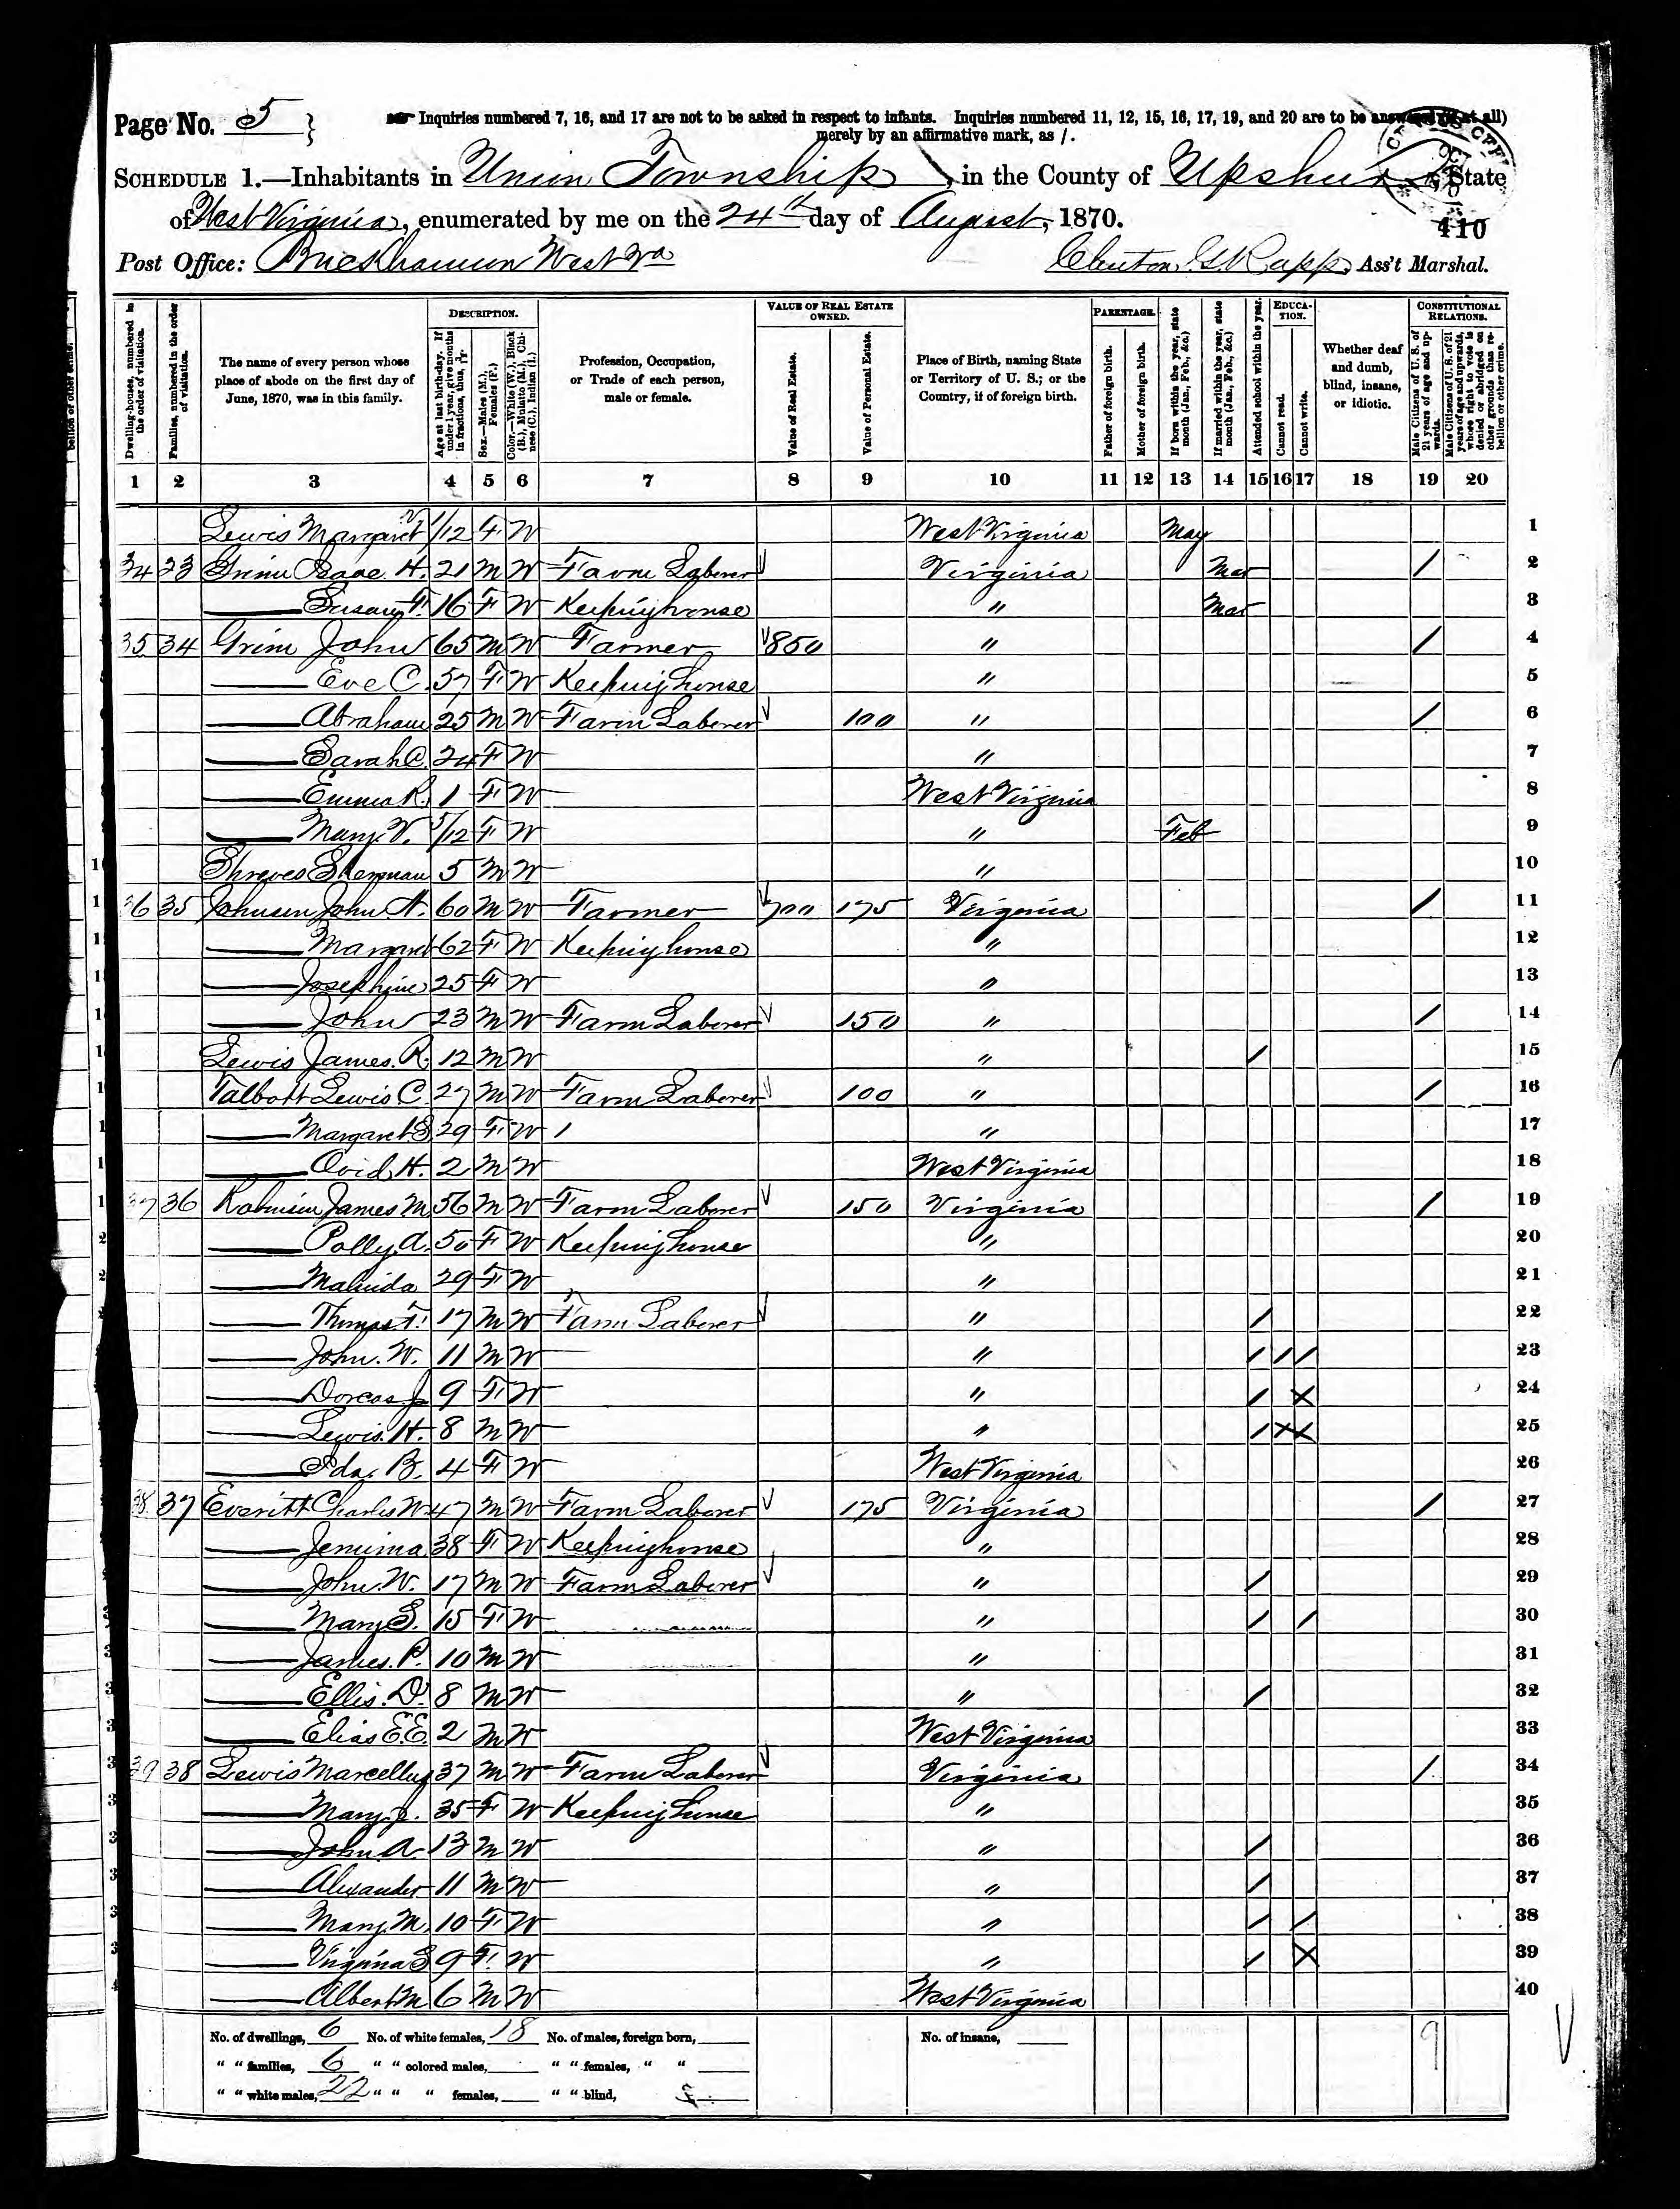 Page No. 5 }
Inquiries numbered 7, 16, and 17 are not to be asked in respect to infants. Inquiries numbered 11, 12, 15, 16, 17, 19, and 20 are to be answered (if at all)
merely by an affirmative mark, as /.
SCHEDULE 1.—Inhabitants in Union Township, in the County of Upshur, State
of West Virginia, enumerated by me on the 24th day of August, 1870.
410
Post Office: Buckhannon West Va
Ass't Marshal.
Dwelling-houses, numbered in the order of visitation.
Families, numbered in the order of visitation.
The name of every person whose place of abode on the first day of June, 1870, was in this family.
DESCRIPTION.
Age at last birth-day. If under 1 year, give months in fractions, thus,
Sex.—Males (M.), Females (F.)
Color.—White (W.), Black (B.), Mulatto (M.), Chinese (C.), Indian (I.)
Profession, Occupation, or Trade of each person, male or female.
VALUE OF REAL ESTATE OWNED.
Value of Real Estate.
Value of Personal Estate.
Place of Birth, naming State or Territory of U. S.; or the Country, if of foreign birth.
PARENTAGE.
Father of foreign birth.
Mother of foreign birth.
If born within the year, state month (Jan., Feb., &c.)
If married within the year, state month (Jan., Feb., &c.)
Attended school within the year.
EDUCATION.
Cannot read.
Cannot write.
Whether deaf and dumb, blind, insane, or idiotic.
CONSTITUTIONAL RELATIONS.
Male Citizens of U. S. of 21 years of age and upwards.
Male Citizens of U. S. of 21 years of age and upwards, whose right to vote is denied or abridged on other grounds than rebellion or other crime.
1 2 3 4 5 6 7 8 9 10 11 12 13 14 15 16 17 18 19 20
Lewis Margaret V 1/12 F W West Virginia May 1
34 23 Grim Isaac H. 21 M W Farm Laborer Virginia Mar / 2
Susan F. 16 F W Keeping house " Mar 3
35 34 Grim John 65 M W Farmer 850 " / 4
Eve C. 57 F W Keeping house " 5
Abraham 25 M W Farm Laborer 100 " / 6
Sarah C. 24 F W " 7
Emma R. 1 F W West Virginia 8
Mary V. 5/12 F W " Feb 9
Shreves Sherman 5 M W " 10
36 35 Johnson John N. 60 M W Farmer 700 175 Virginia / 11
Margaret 62 F W Keeping house " 12
Josephine 25 F W " 13
John 23 M W Farm Laborer 150 " / 14
Lewis James R. 12 M W " / 15
Talbott Lewis C. 27 M W Farm Laborer 100 " / 16
Margaret S 29 F W / " 17
Ovid H. 2 M W West Virginia 18
37 36 Robinson James M 56 M W Farm Laborer 150 Virginia / 19
Polly A. 50 F W Keeping house " 20
Malinda 29 F W " 21
Thomas F. 17 M W Farm Laborer " / 22
John. W. 11 M W " / / / 23
Dorcas J 9 F W " / X 24
Lewis. H. 8 M W " / X X 25
Ida. B. 4 F W West Virginia 26
38 37 Everitt Charles W. 47 M W Farm Laborer 175 Virginia / 27
Jemima 38 F W Keeping house " 28
John. W. 17 M W Farm Laborer " / 29
Mary S. 15 F W " / / 30
James. P. 10 M W " 31
Ellis. D. 8 M W " / 32
Elias E.E. 2 M W West Virginia 33
39 38 Lewis Marcellus 37 M W Farm Laborer Virginia / 34
Mary. J. 35 F W Keeping house " 35
John A. 13 M W " / 36
Alexander 11 M W " / 37
Mary. M. 10 F W " / / 38
Virginia S 9 F. W " / X 39
Albert M 6 M W West Virginia 40
No. of dwellings, 6 No. of white females, 18 No. of males, foreign born, No. of insane, 9
" " families, 6 " " colored males, " " females, " "
" " white males, 22 " " " females, " " blind,